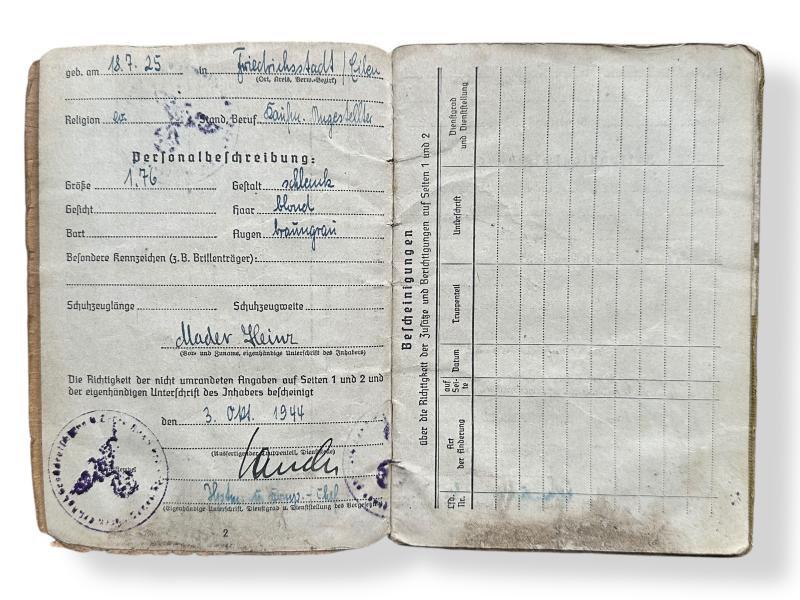 geb. am 18.7.25 in Friedrichsstadt /
(Ort, Kreis, Verw.-Bezirk)
Religion ev Stand, Beruf Kaufm. Angestellter
Personalbeschreibung:
Größe 1.76 Gestalt schlank
Gesicht Haar blond
Bart Augen braungrau
Besondere Kennzeichen (z.B. Brillenträger):
Schuhzeuglänge Schuhzeugweite
Mader Heinz
(Vor- und Zuname, eigenhändige Unterschrift des Inhabers)
Die Richtigkeit der nicht umrandeten Angaben auf Seiten 1 und 2 und
der eigenhändigen Unterschrift des Inhabers bescheinigt
den 3. Okt. 1944
(Ausfertigender Truppenteil, Dienststelle)
(Eigenhändige Unterschrift, Dienstgrad u. Dienststellung des Vorgesetzten)
2
Bescheinigungen
über die Richtigkeit der Zusätze und Berichtigungen auf Seiten 1 und 2
Lfd. Nr.
Art der Änderung
auf Sei- te
Datum
Truppenteil
Unterschrift
Dienstgrad und Dienststellung